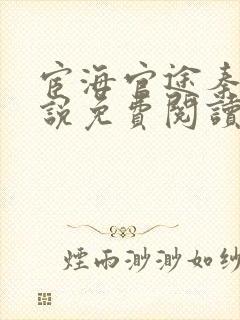 宦海官途秦
說免費閱讀
煙雨渺渺如紗